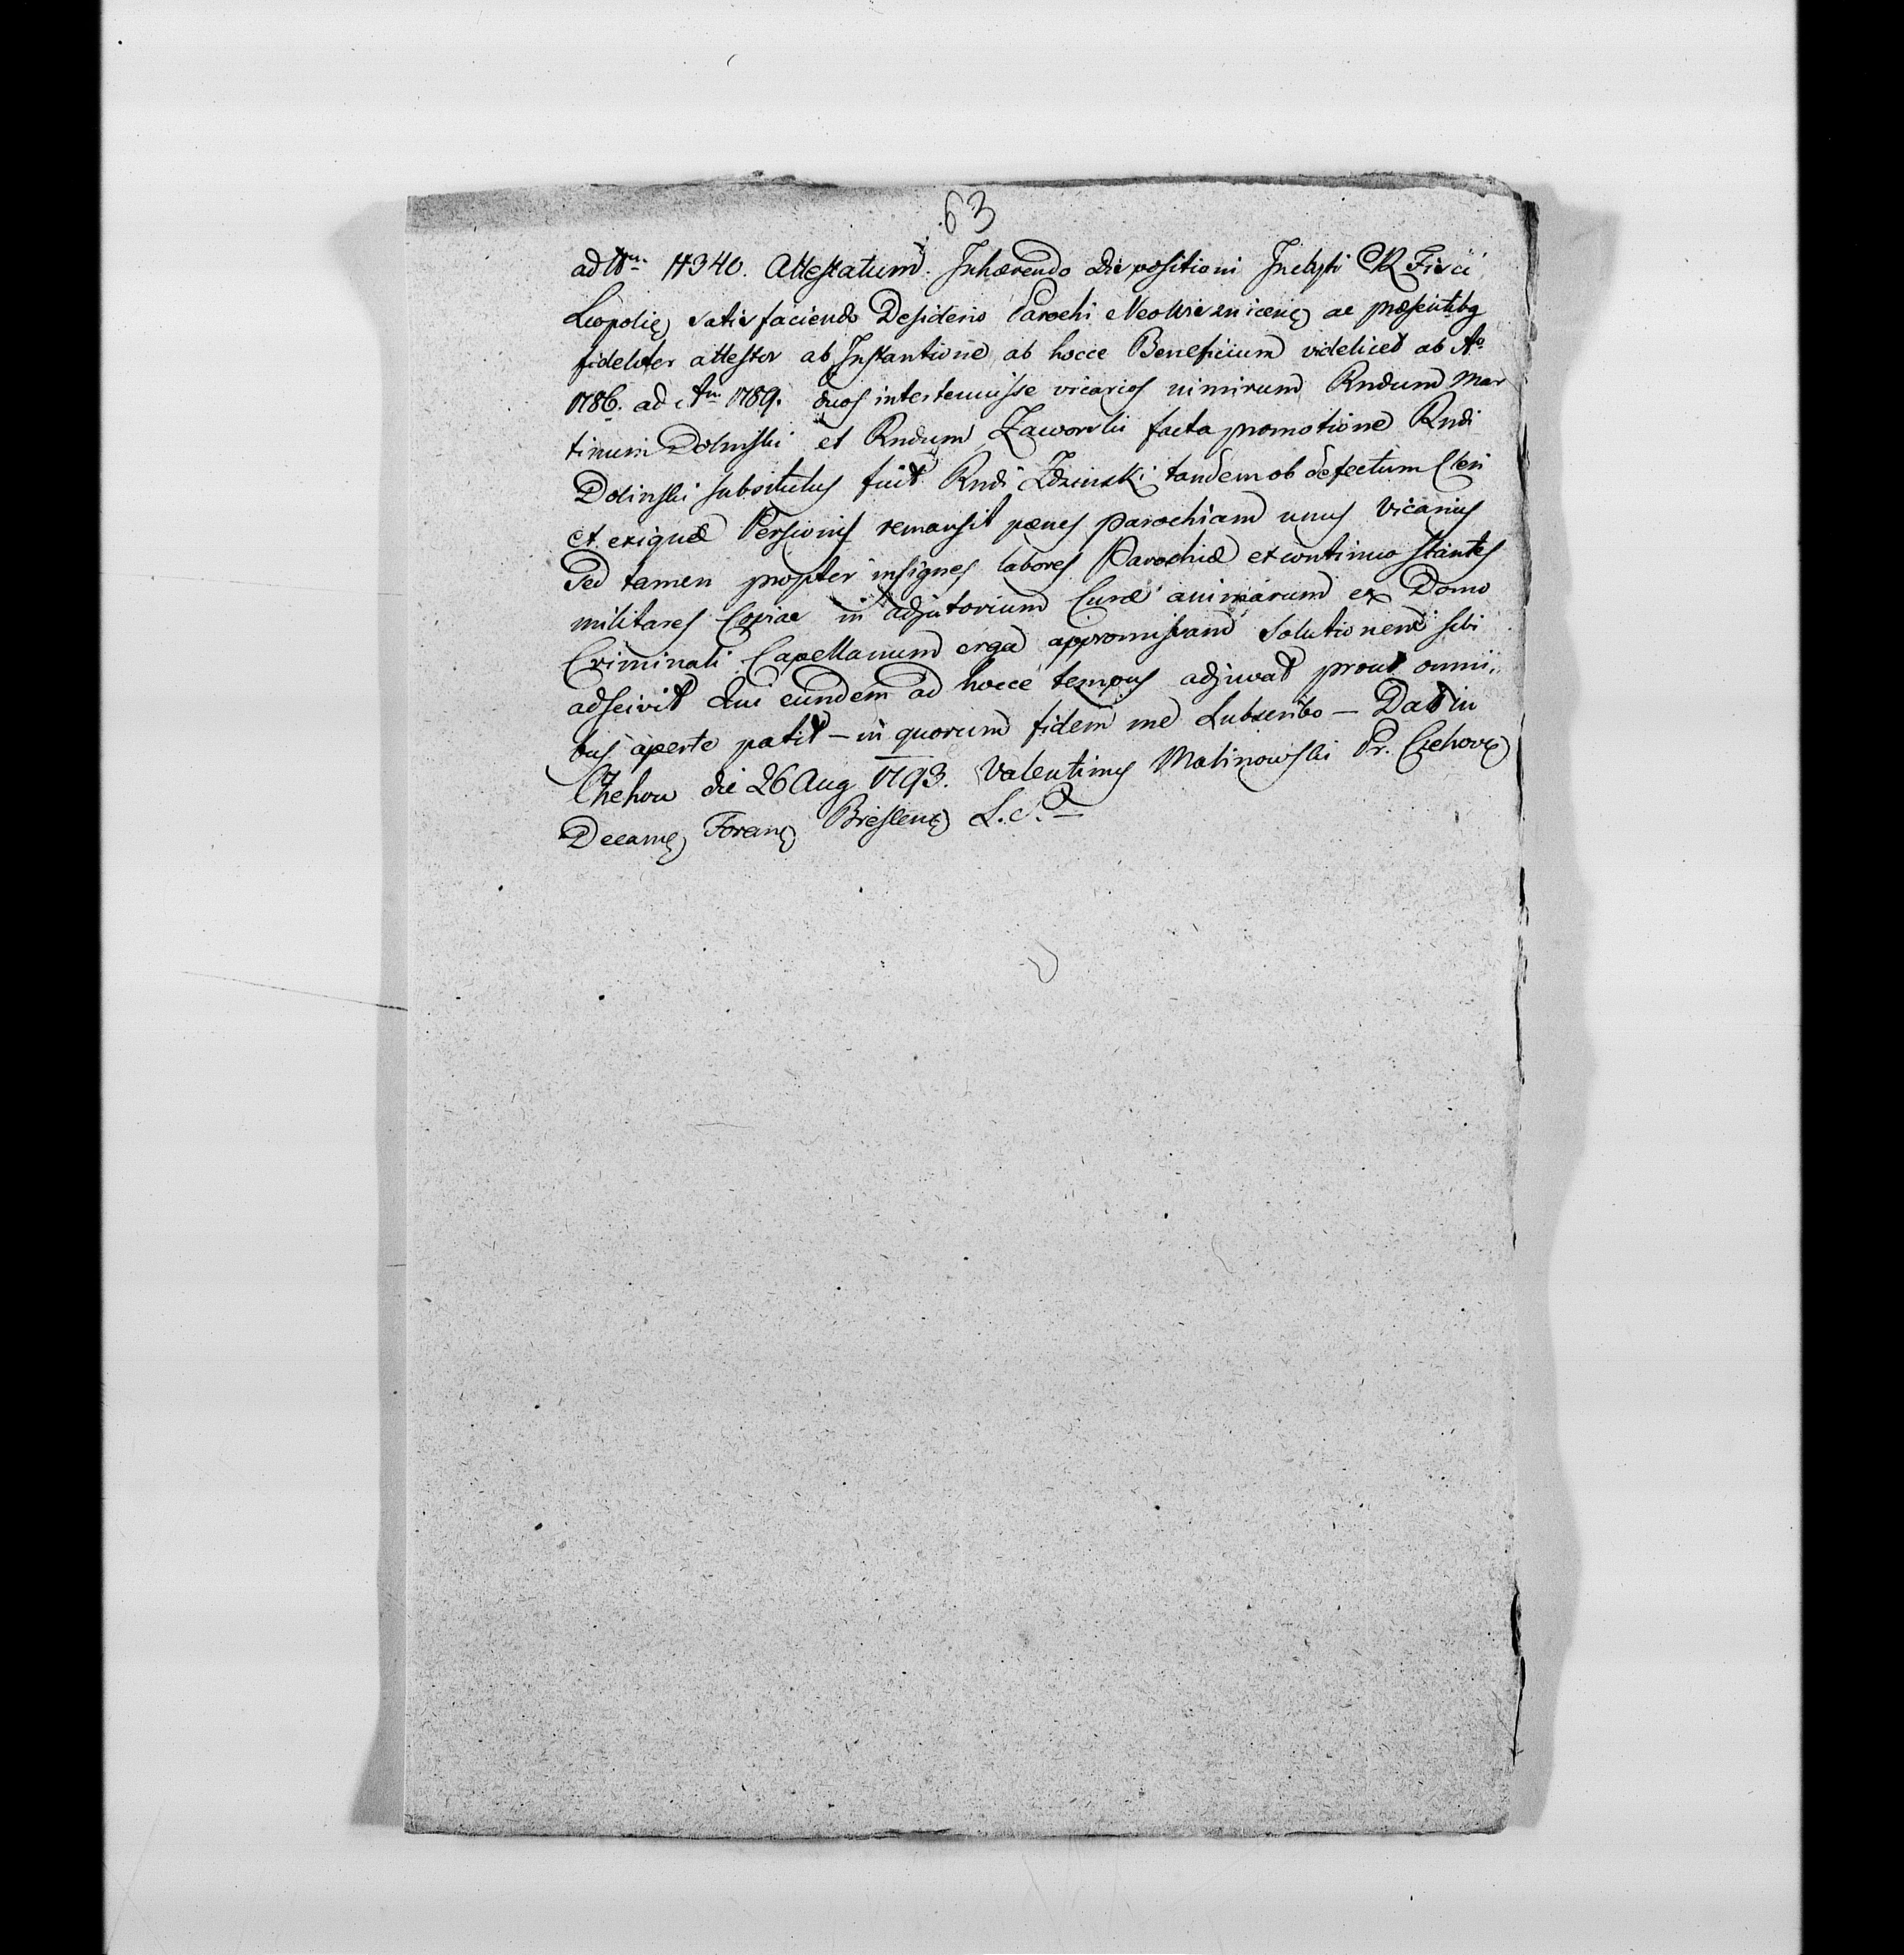 63
ad Nrum 17340. Attestatum. Inhærendo dispositioni Inclyti CR Fisci
Leopolię satisfaciendo Desiderio Parochi Neowisnicenę ac præsentibg
fideliter attestor ab Instantione ab hocce Beneficium videlicet ab Ao
1786. ad Am 1789. duos intertenuisse vicarios nimirum Rndum Mar
tinum Dolinski et Rndum Zaworski facta promotione Rndi
Dolinski substitutus fuit Rndi Zdzinski tandem ob defectum Cleri
et exiguæ Persionis remansit penes parochiam unus Vicarius
Sed tamen propter insignes labores Parochiæ et continuo stantes
militares Copias in adjutorium Curæ animarum ex Domo
Criminali Capellanum erga appromissam solutionem sibi
adscivit qui eundem ad hocce tempus adjuvat prout omni,
bus aperte patit – in quorum fidem me Subscribo – Dat in
Chehow die 26 Aug 1793. Valentinus Malinowski Pr. Czehovę
Decanę Foranę Breslenę L.S.